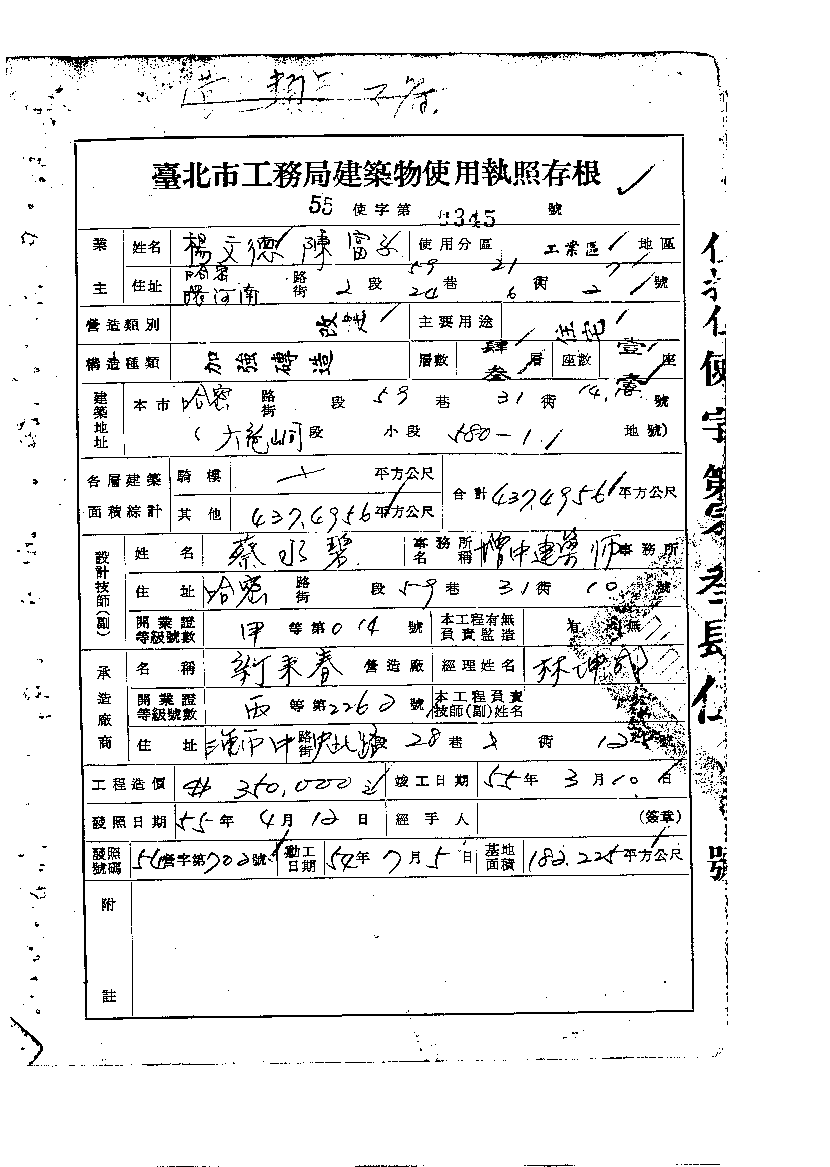 臺北市工務局建築物使用執照存根
55 使字第 0345 號
業主 姓名 楊文德 陳富子 使用分區 工業區 地區
住址 哈密 河南 路街 2 段 59 24 巷 21 6 街 2 號
營造類別 改造 主要用途 住宅
構造種類 加強磚造 層數 肆 叁 層 座數 壹 壹 座
建築地址 本市 哈密 路街 段 59 巷 31 街 14. 號
( 大龍峒 段 小段 580-1 地號)
各層建築面積綜計 騎樓 平方公尺 合計 437.4956 平方公尺
其他 437.4956 平方公尺
設計技師(副) 姓名 蔡水碧 事務所名稱 增中建築师 事務所
住址 哈密 路街 段 59 巷 31 街 10 號
開業證等級號數 甲 等第 014 號 本工程有無負責監造 有 無
承造廠商 名稱 新東春 營造廠 經理姓名 林坤
開業證等級號數 丙 等第 2260 號 本工程負責技師(副)姓名
住址 市中 北路 路街 段 28 巷 街 12 號
工程造價 350,000 竣工日期 55 年 3 月 10 日
發照日期 55 年 4 月 12 日 經手人 (簽章)
發照號碼 54 營字第 702 號 動工日期 54 年 7 月 5 日 基地面積 182.225 平方公尺
附註
使字第 叁 伍 號